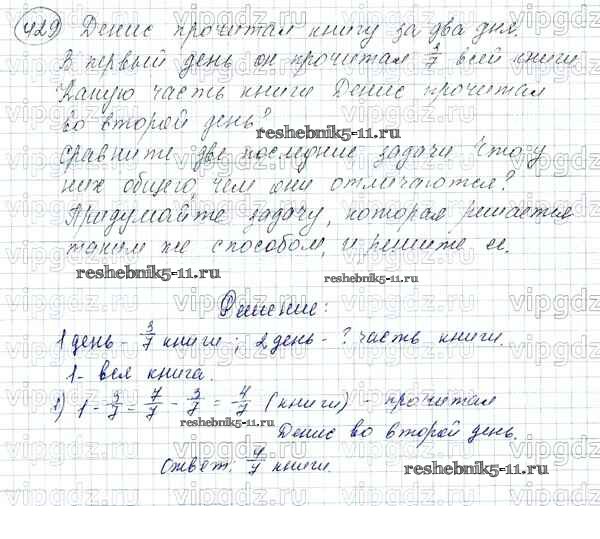 429) Денис прочитал книгу за два дня.
В первый день он прочитал 3/7 всей книги
Какую часть книги Денис прочитал
во второй день?
reshebnik5-11.ru
Сравните две последние задачи Что у
них общего, чем они отличаются?
Придумайте задачу, которая решается
таким же способом, и решите ее.
reshebnik5-11.ru reshebnik5-11.ru
Решение:
1 день - 3/7 книги; 2 день - ? часть книги.
1 - вся книга.
1) 1 - 3/7 = 7/7 - 3/7 = 4/7 (книги) - прочитал
reshebnik5-11.ru
Денис во второй день.
Ответ: 4/7 книги.
reshebnik5-11.ru